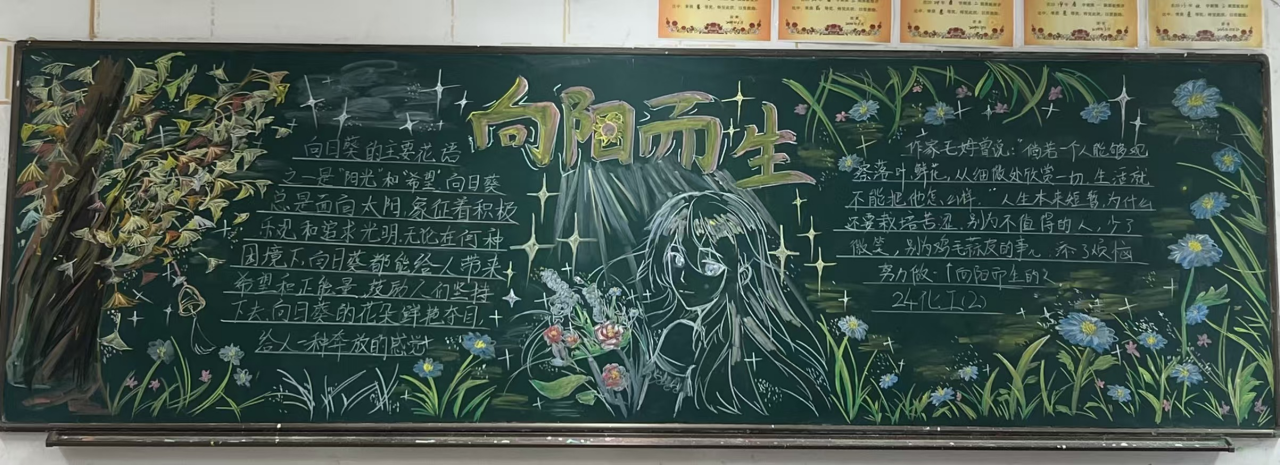 向阳而生
向日葵的主要花语
之一是"阳光"和"希望"向日葵
总是面向太阳,象征着积极
乐观和追求光明,无论在何种
困境下,向日葵都能给人带来
希望和正能量,鼓励人们坚持
下去,向日葵的花朵鲜艳夺目,
给人一种奔放的感觉
作家毛姆曾说:"倘若一个人能够观
察落叶,鲜花,从细微处欣赏一切,生活就
不能把他怎么样."人生本来短暂,为什么
还要栽培苦涩,别为不值得的人,少了
微笑,别为鸡毛蒜皮的事儿,添了烦恼
努力做一个向阳而生的人
24化工(2)